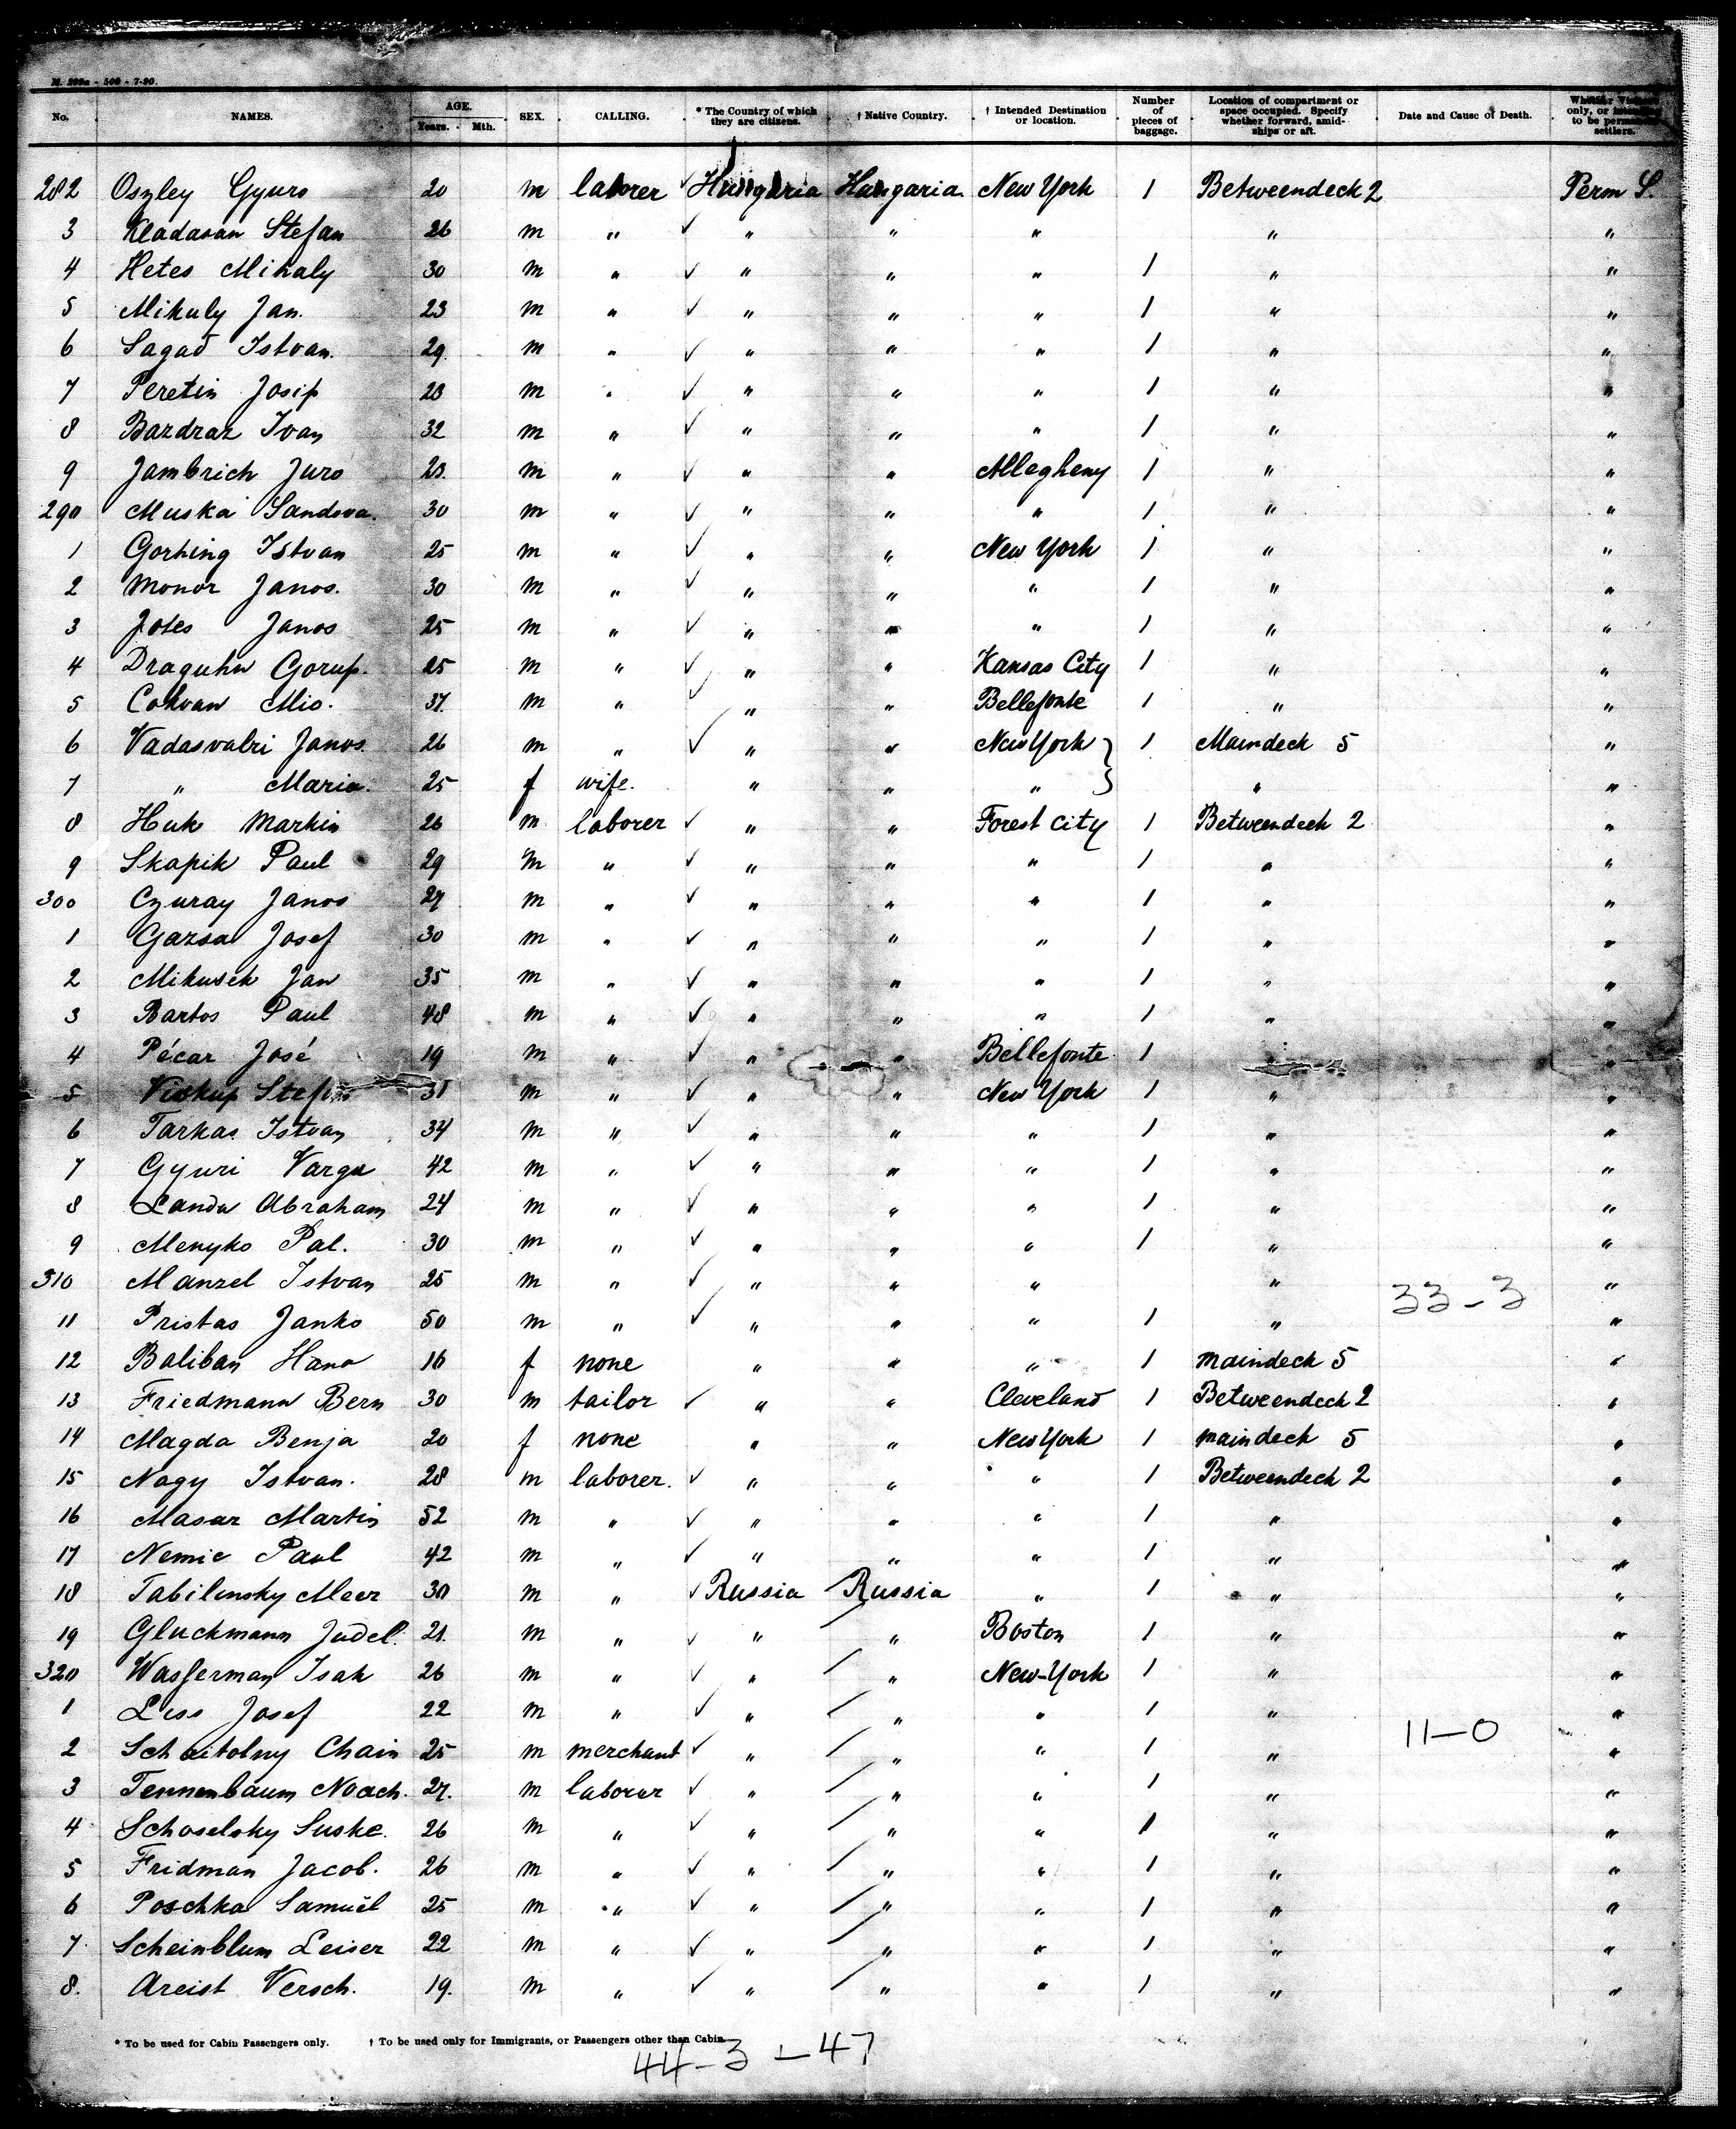 M. 209a - 500 - 7-90.
No. NAMES. AGE. Years. Mth. SEX. CALLING. * The Country of which they are citizens. † Native Country. † Intended Destination or location. Number of pieces of baggage. Location of compartment or space occupied. Specify whether forward, amidships or aft. Date and Cause of Death. Whether only, or to be settlers.
282 Oszley Gyuro 20 m laborer ✓ Hungaria Hungaria New York 1 Betweendeck 2 Perm S.
3 Kladavan Stefan 26 m " ✓ " " " " "
4 Hetes Mihaly 30 m " ✓ " " " 1 " "
5 Mihuly Jan. 23 m " ✓ " " " 1 " "
6 Sagad Istvan. 29. m " ✓ " " " 1 " "
7 Peretin Josip 23 m " ✓ " " " 1 " "
8 Bazdraz Ivan 32 m " ✓ " " " 1 " "
9 Jambrich Juro 23. m " ✓ " " Allegheny 1 " "
290 Muska Sandova. 30 m " ✓ " " " 1 " "
1 Gorhing Istvan 25 m " ✓ " " New York 1 " "
2 Monor Janos. 30 m " ✓ " " " 1 " "
3 Jotes Janos 25 m " ✓ " " " 1 " "
4 Draguhn Gorup. 25 m " ✓ " " Kansas City 1 " "
5 Cokvan Mio. 37. m " ✓ " " Bellefonte 1 " "
6 Vadasvalri Janos. 26 m " ✓ " " New York } 1 Maindeck 5 "
7 " Maria. 25 f wife. " " " " "
8 Huk Martin 26 m laborer ✓ " " Forest City 1 Betweendeck 2 "
9 Skapik Paul 29 m " ✓ " " " 1 " "
300 Czuray Janos 27 m " ✓ " " " 1 " "
1 Gazsa Josef 30 m " ✓ " " " 1 " "
2 Mikusek Jan 35 m " ✓ " " " 1 " "
3 Bartos Paul 48 m " ✓ " " " 1 " "
4 Pécar José 19 m " ✓ " " Bellefonte 1 "
5 Viskup 31 m " ✓ " " New York 1 " "
6 Tarkas Istvan 34 m " ✓ " " " 1 " "
7 Gyuri Varga 42 m " ✓ " " " 1 " "
8 Landa Abraham 24 m " ✓ " " " 1 " "
9 Menyko Pal. 30 m " ✓ " " " 1 " "
310 Manzel Istvan 25 m " ✓ " " " " 33-3 "
11 Pristas Janko 50 m " ✓ " " " 1 " "
12 Baliban Hana 16 f none " " " 1 maindeck 5 "
13 Friedmann Bern 30 m tailor ✓ " " Cleveland 1 Betweendeck 2 "
14 Magda Benja 20 f none " " New York 1 maindeck 5 "
15 Nagy Istvan. 28 m laborer. ✓ " " " 1 Betweendeck 2 "
16 Masar Martin 52 m " ✓ " " " 1 " "
17 Nemic Paul 42 m " ✓ " " " 1 " "
18 Tabilinsky Meer 30 m " ✓ Russia Russia " 1 " "
19 Gluckmann Judel. 21. m " ✓ " " Boston 1 " "
320 Wasserman Isak 26 m " ✓ " " New-York 1 " "
1 Liss Josef 22 m " ✓ " " " 1 " "
2 Schaitolny Chain 25 m merchant ✓ " " " 1 " 11-0 "
3 Tennenbaum Noach. 27. m laborer ✓ " " " 1 " "
4 Schoselsky Suske. 26 m " ✓ " " " 1 " "
5 Fridman Jacob. 26 m " ✓ " " " 1 " "
6 Poschka Samuel 25 m " ✓ " " " 1 " "
7 Scheinblum Leiser 22 m " ✓ " " " 1 " "
8. Areist Versch. 19. m " ✓ " " " 1 " "
* To be used for Cabin Passengers only. † To be used only for Immigrants, or Passengers other than Cabin.
44-3-47